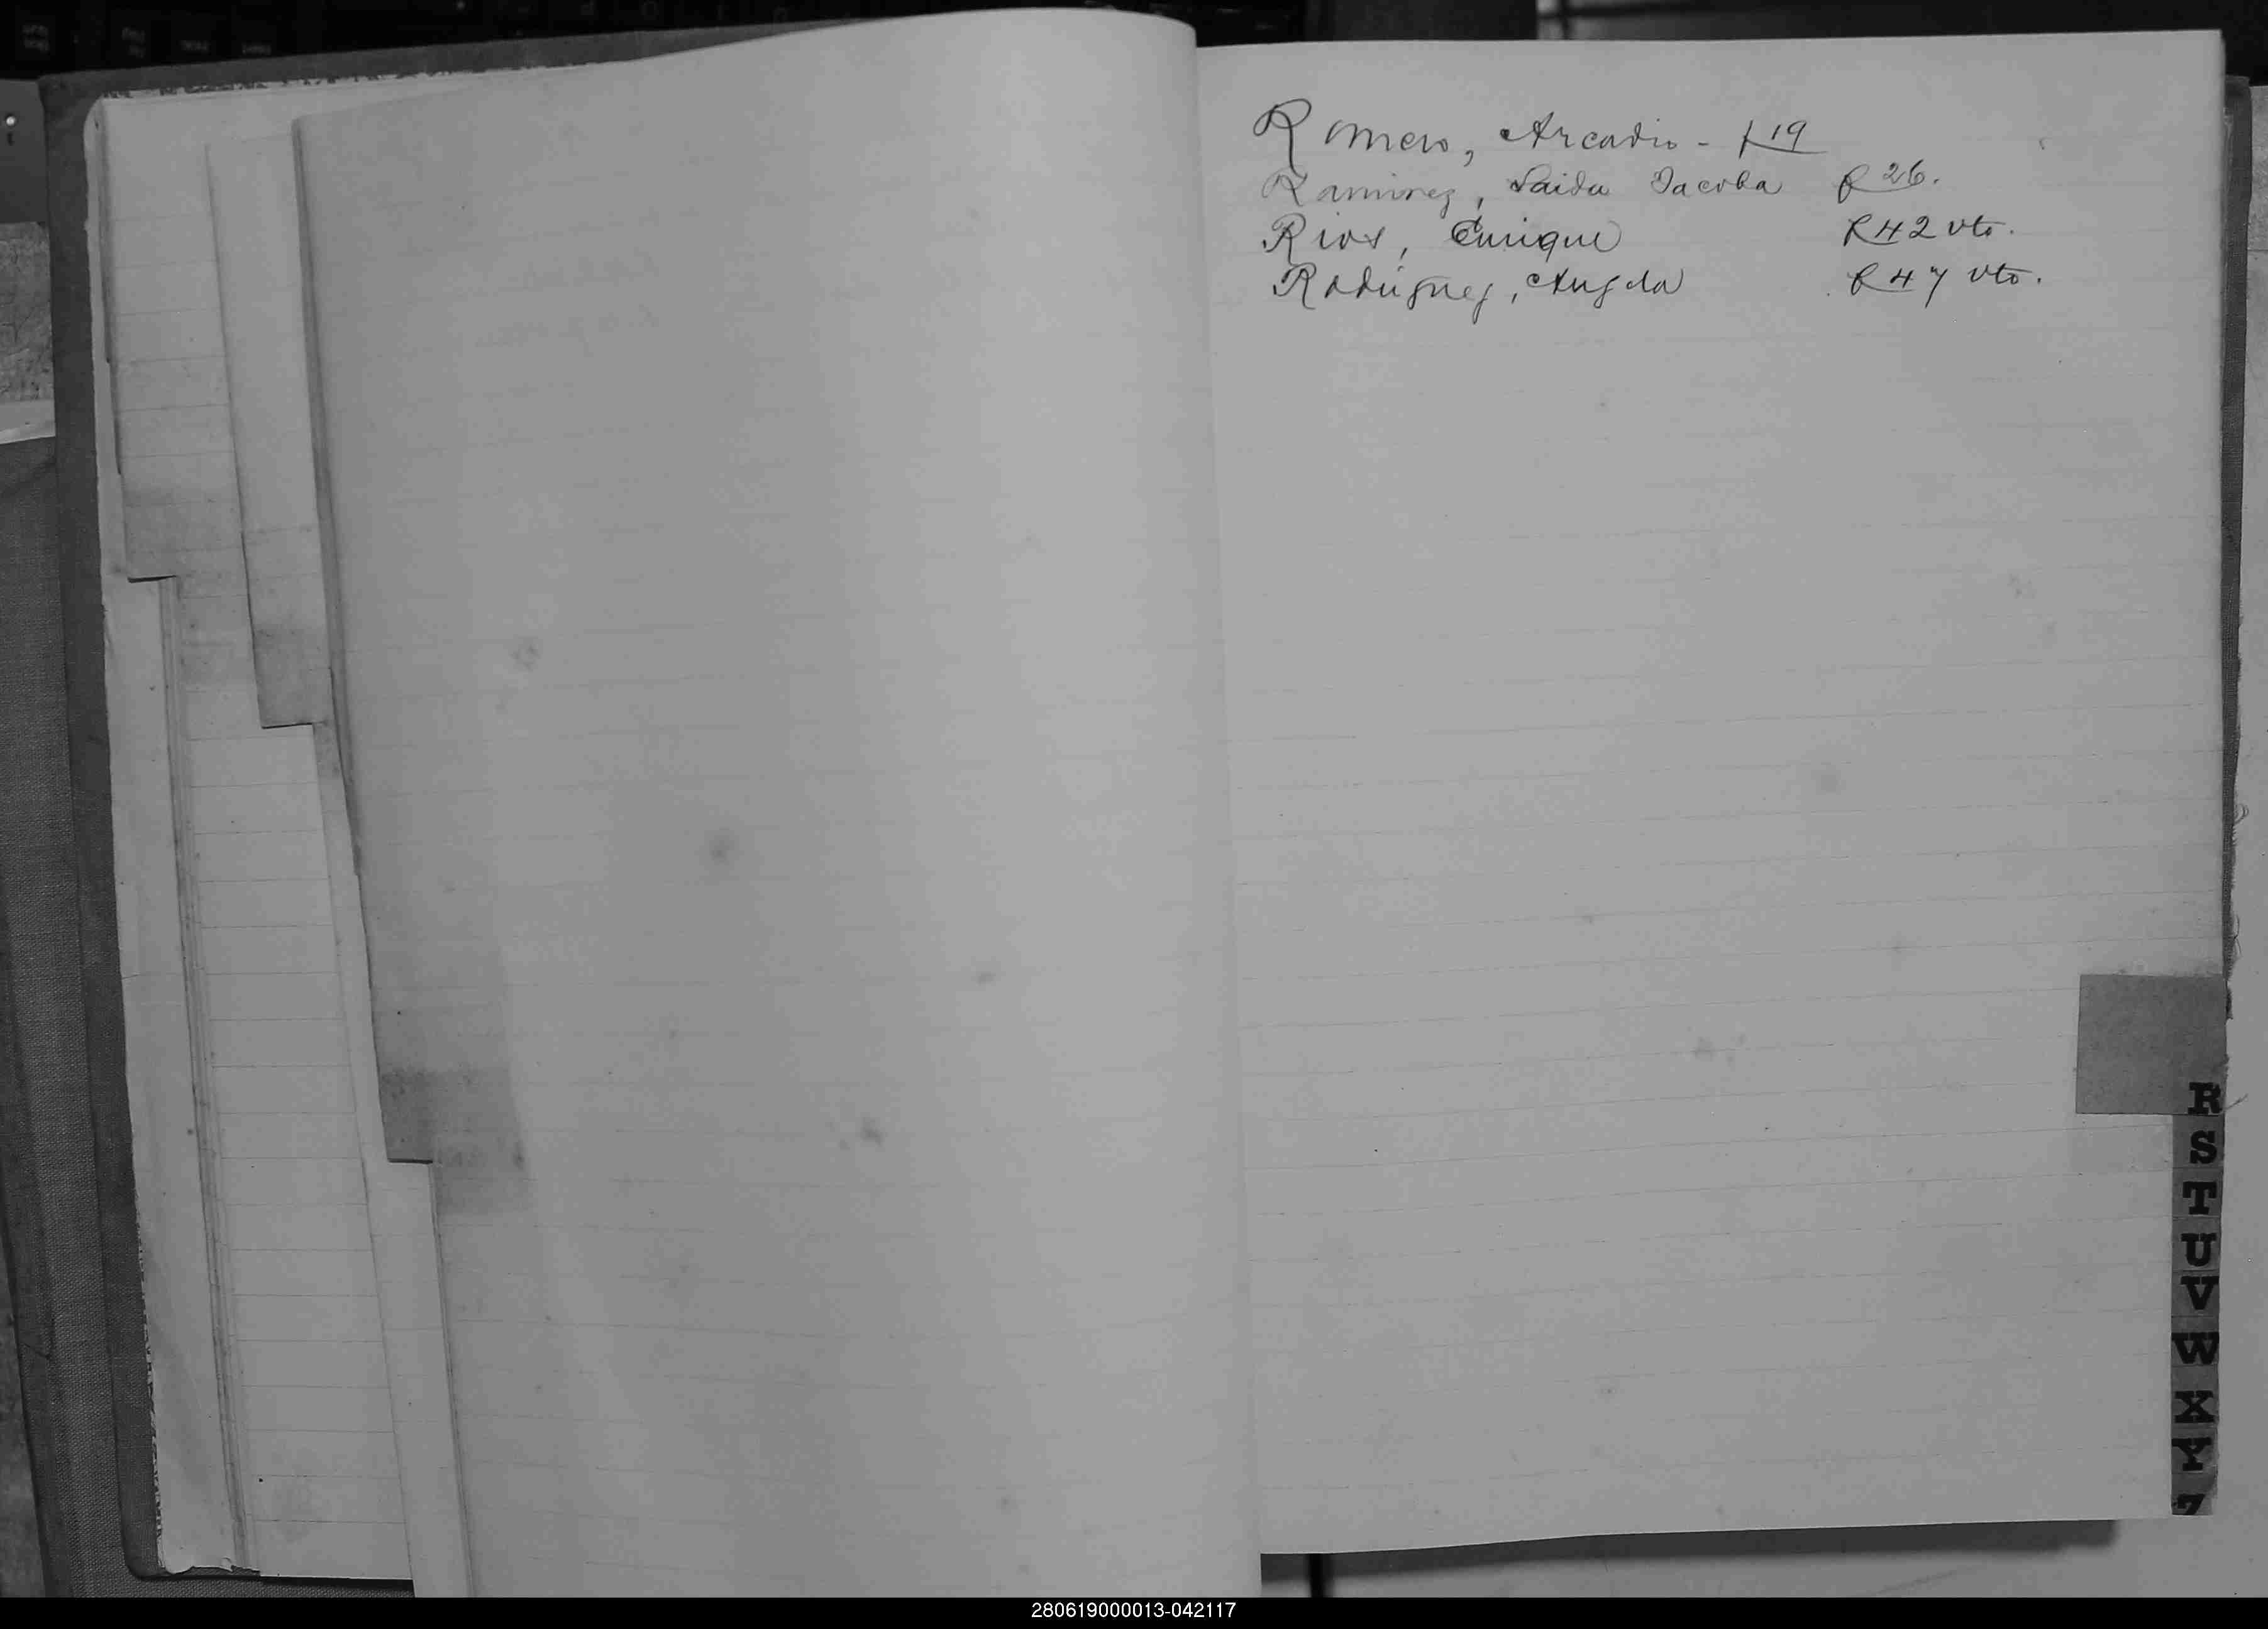 Romero, Arcadio - f 19
Ramirez, Saida Jacoba f 26.
Rios, Enrique f 42 vto.
Rodriguez, Angela f 47 vto.
R
S
T
U
V
W
X
Y
Z
280619000013-042117